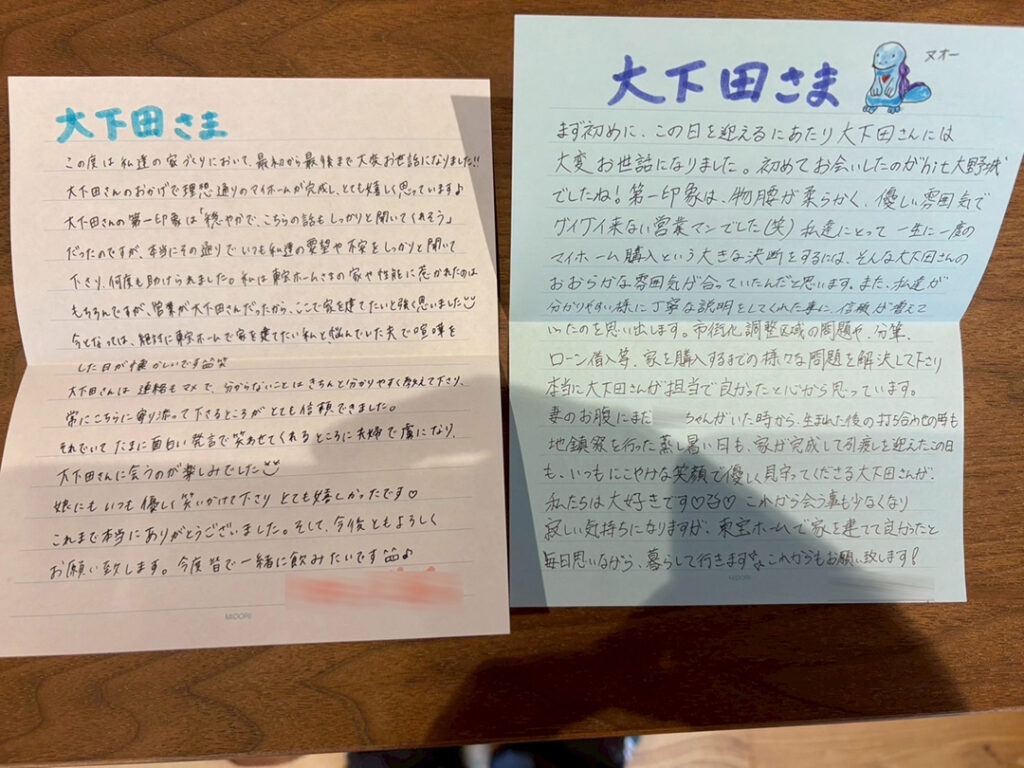 大下田さま
この度は私達の家づくりにおいて、最初から最後まで大変お世話になりました!!
大下田さんのおかげで理想通りのマイホームが完成し、とても嬉しく思っています♪
大下田さんの第一印象は「穏やかで、こちらの話もしっかりと聞いてくれそう」
だったのですが、本当にその通りでいつも私達の要望や不安をしっかりと聞いて
下さり、何度も助けられました。私は東宝ホームさんの家や性能に惹かれたのは
もちろんですが、営業が大下田さんだったから、ここで家を建てたいと強く思いました
今となっては、絶対に東宝ホームで家を建てたい私と悩んでいた夫で喧嘩を
した日が懐かしいです笑
大下田さんは連絡もマメで、分からないことはきちんと分かりやすく教えて下さり、
常にこちらに寄り添って下さるところがとても信頼できました。
それでいてたまに面白い発言で笑わせてくれるところに夫婦で虜になり、
大下田さんに会うのが楽しみでした
娘にもいつも優しく笑いかけて下さりとても嬉しかったです♡
これまで本当にありがとうございました。そして、今後ともよろしく
お願い致します。今度皆で一緒に飲みたいです♪
MIDORI
大下田さま
ヌオー
まず初めに、この日を迎えるにあたり大下田さんには
大変お世話になりました。初めてお会いしたのがhit大野城
でしたね!第一印象は、物腰が柔らかく、優しい雰囲気で
グイグイ来ない営業マンでした(笑)私達にとって一生に一度の
マイホーム購入という大きな決断をするには、そんな大下田さんの
おおらかな雰囲気が合っていたんだと思います。また、私達が
分かりやすい様に丁寧な説明をしてくれた事に、信頼が増えて
いったのを思い出します。市街化調整区域の問題や、分筆、
ローン借入等、家を購入するまでの様々な問題を解決して下さり
本当に大下田さんが担当で良かったと心から思っています。
妻のお腹にまだ ちゃんがいた時から、生まれた後の打ち合わせの時も
地鎮祭を行った蒸し暑い日も、家が完成して引渡しを迎えたこの日
も、いつもにこやかな笑顔で優しく見守ってくださる大下田さんが、
私たちは大好きです♡♡ これから会う事も少なくなり
寂しい気持ちになりますが、東宝ホームで家を建てて良かったと
毎日思いながら、暮らして行きます☆これからもお願い致します!
MIDORI